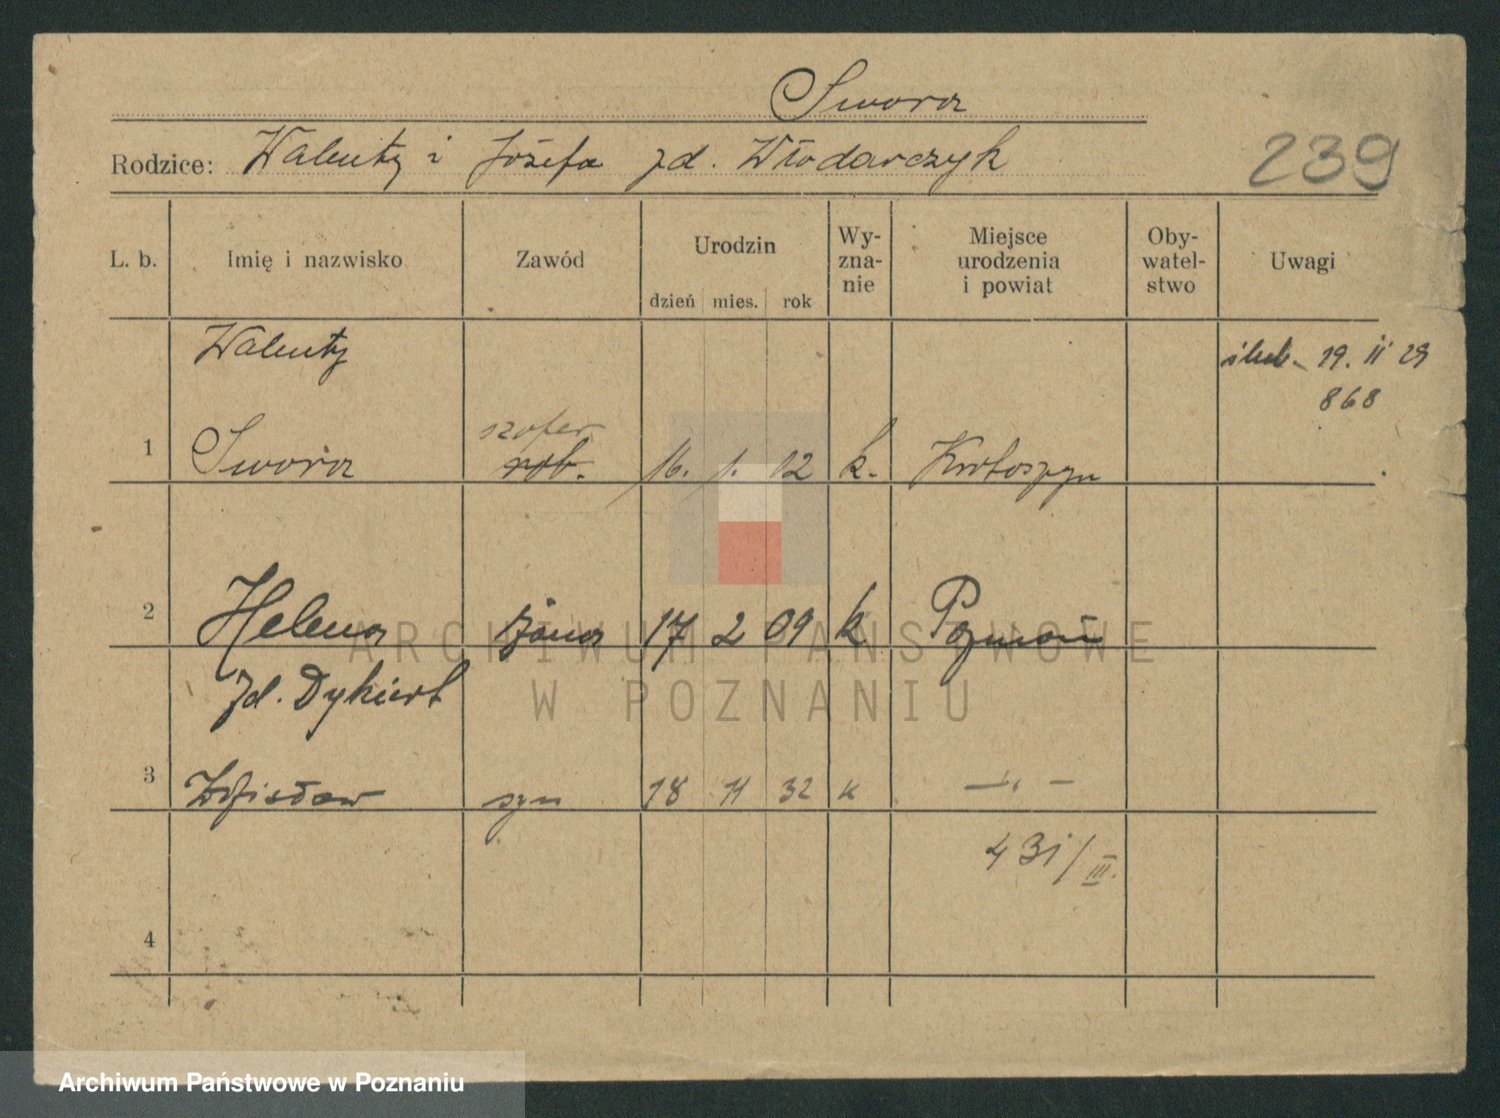 Swora
Rodzice: Walenty i Józefa zd. Włodarczyk
239
L. b. Imię i nazwisko Zawód Urodzin dzień mies. rok Wy-zna-nie Miejsce urodzenia i powiat Oby-watel-stwo Uwagi
Walenty
ślub 19. II 29
868
szofer
1 Swora rob. 16. 1. 02 k. Krotoszyn
2 Helena żona 17 2 09 k Poznań
zd. Dykiert
3 Zdzisław syn 18 11 32 k — „ —
431/III.
4
ARCHIWUM PAŃSTWOWE
W POZNANIU
Archiwum Państwowe w Poznaniu